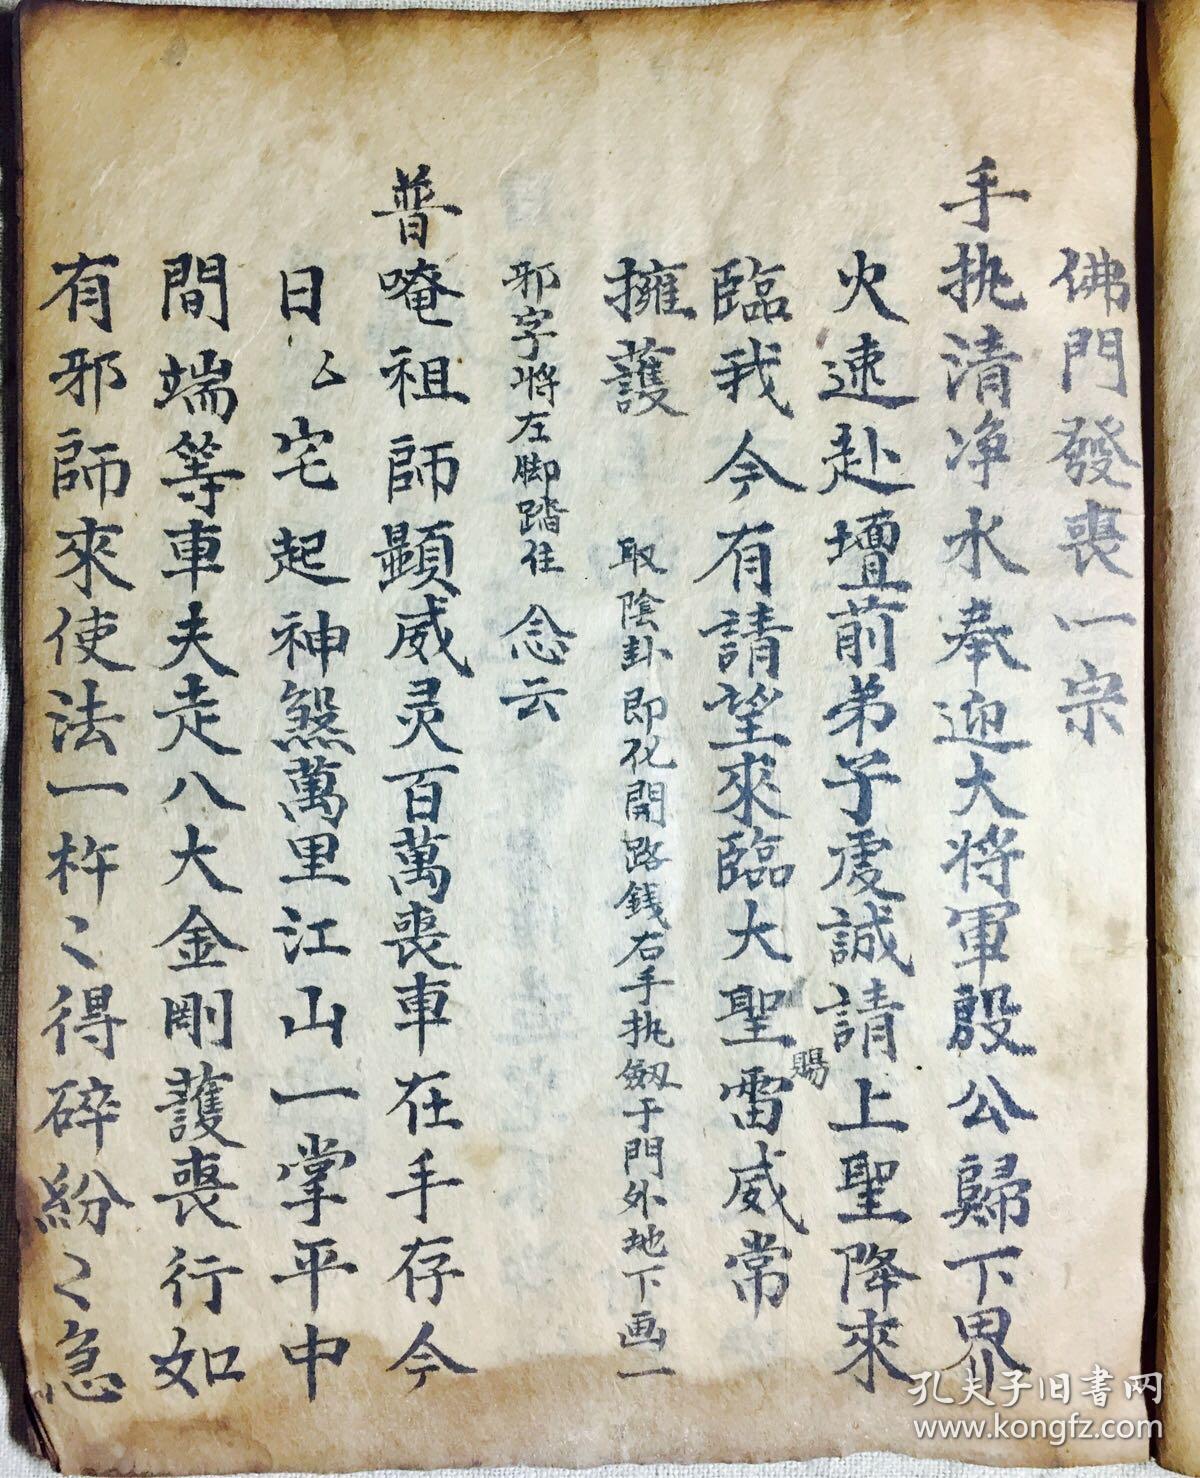 佛門發喪一宗
手执清净水奉迎大将軍殷公歸下界
火速赴壇前弟子虔誠請上聖降來
臨我今有請望來臨大聖賜雷威常
擁護 取陰卦即化開路錢右手执劔于門外地下画一
邪字将左脚踏住 念云
普唵祖師顕威灵百萬喪車在手存今
日厶宅起神煞萬里江山一掌平中
間端等車夫走八大金剛護喪行如
有邪師來使法一杵〻得碎紛〻急
孔夫子旧書网
www.kongfz.com